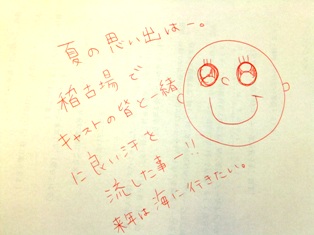 夏の思い出はー。
稽古場で
キャストの皆と一緒
に良い汗を
流した事ー!!
来年は海に行きたい。